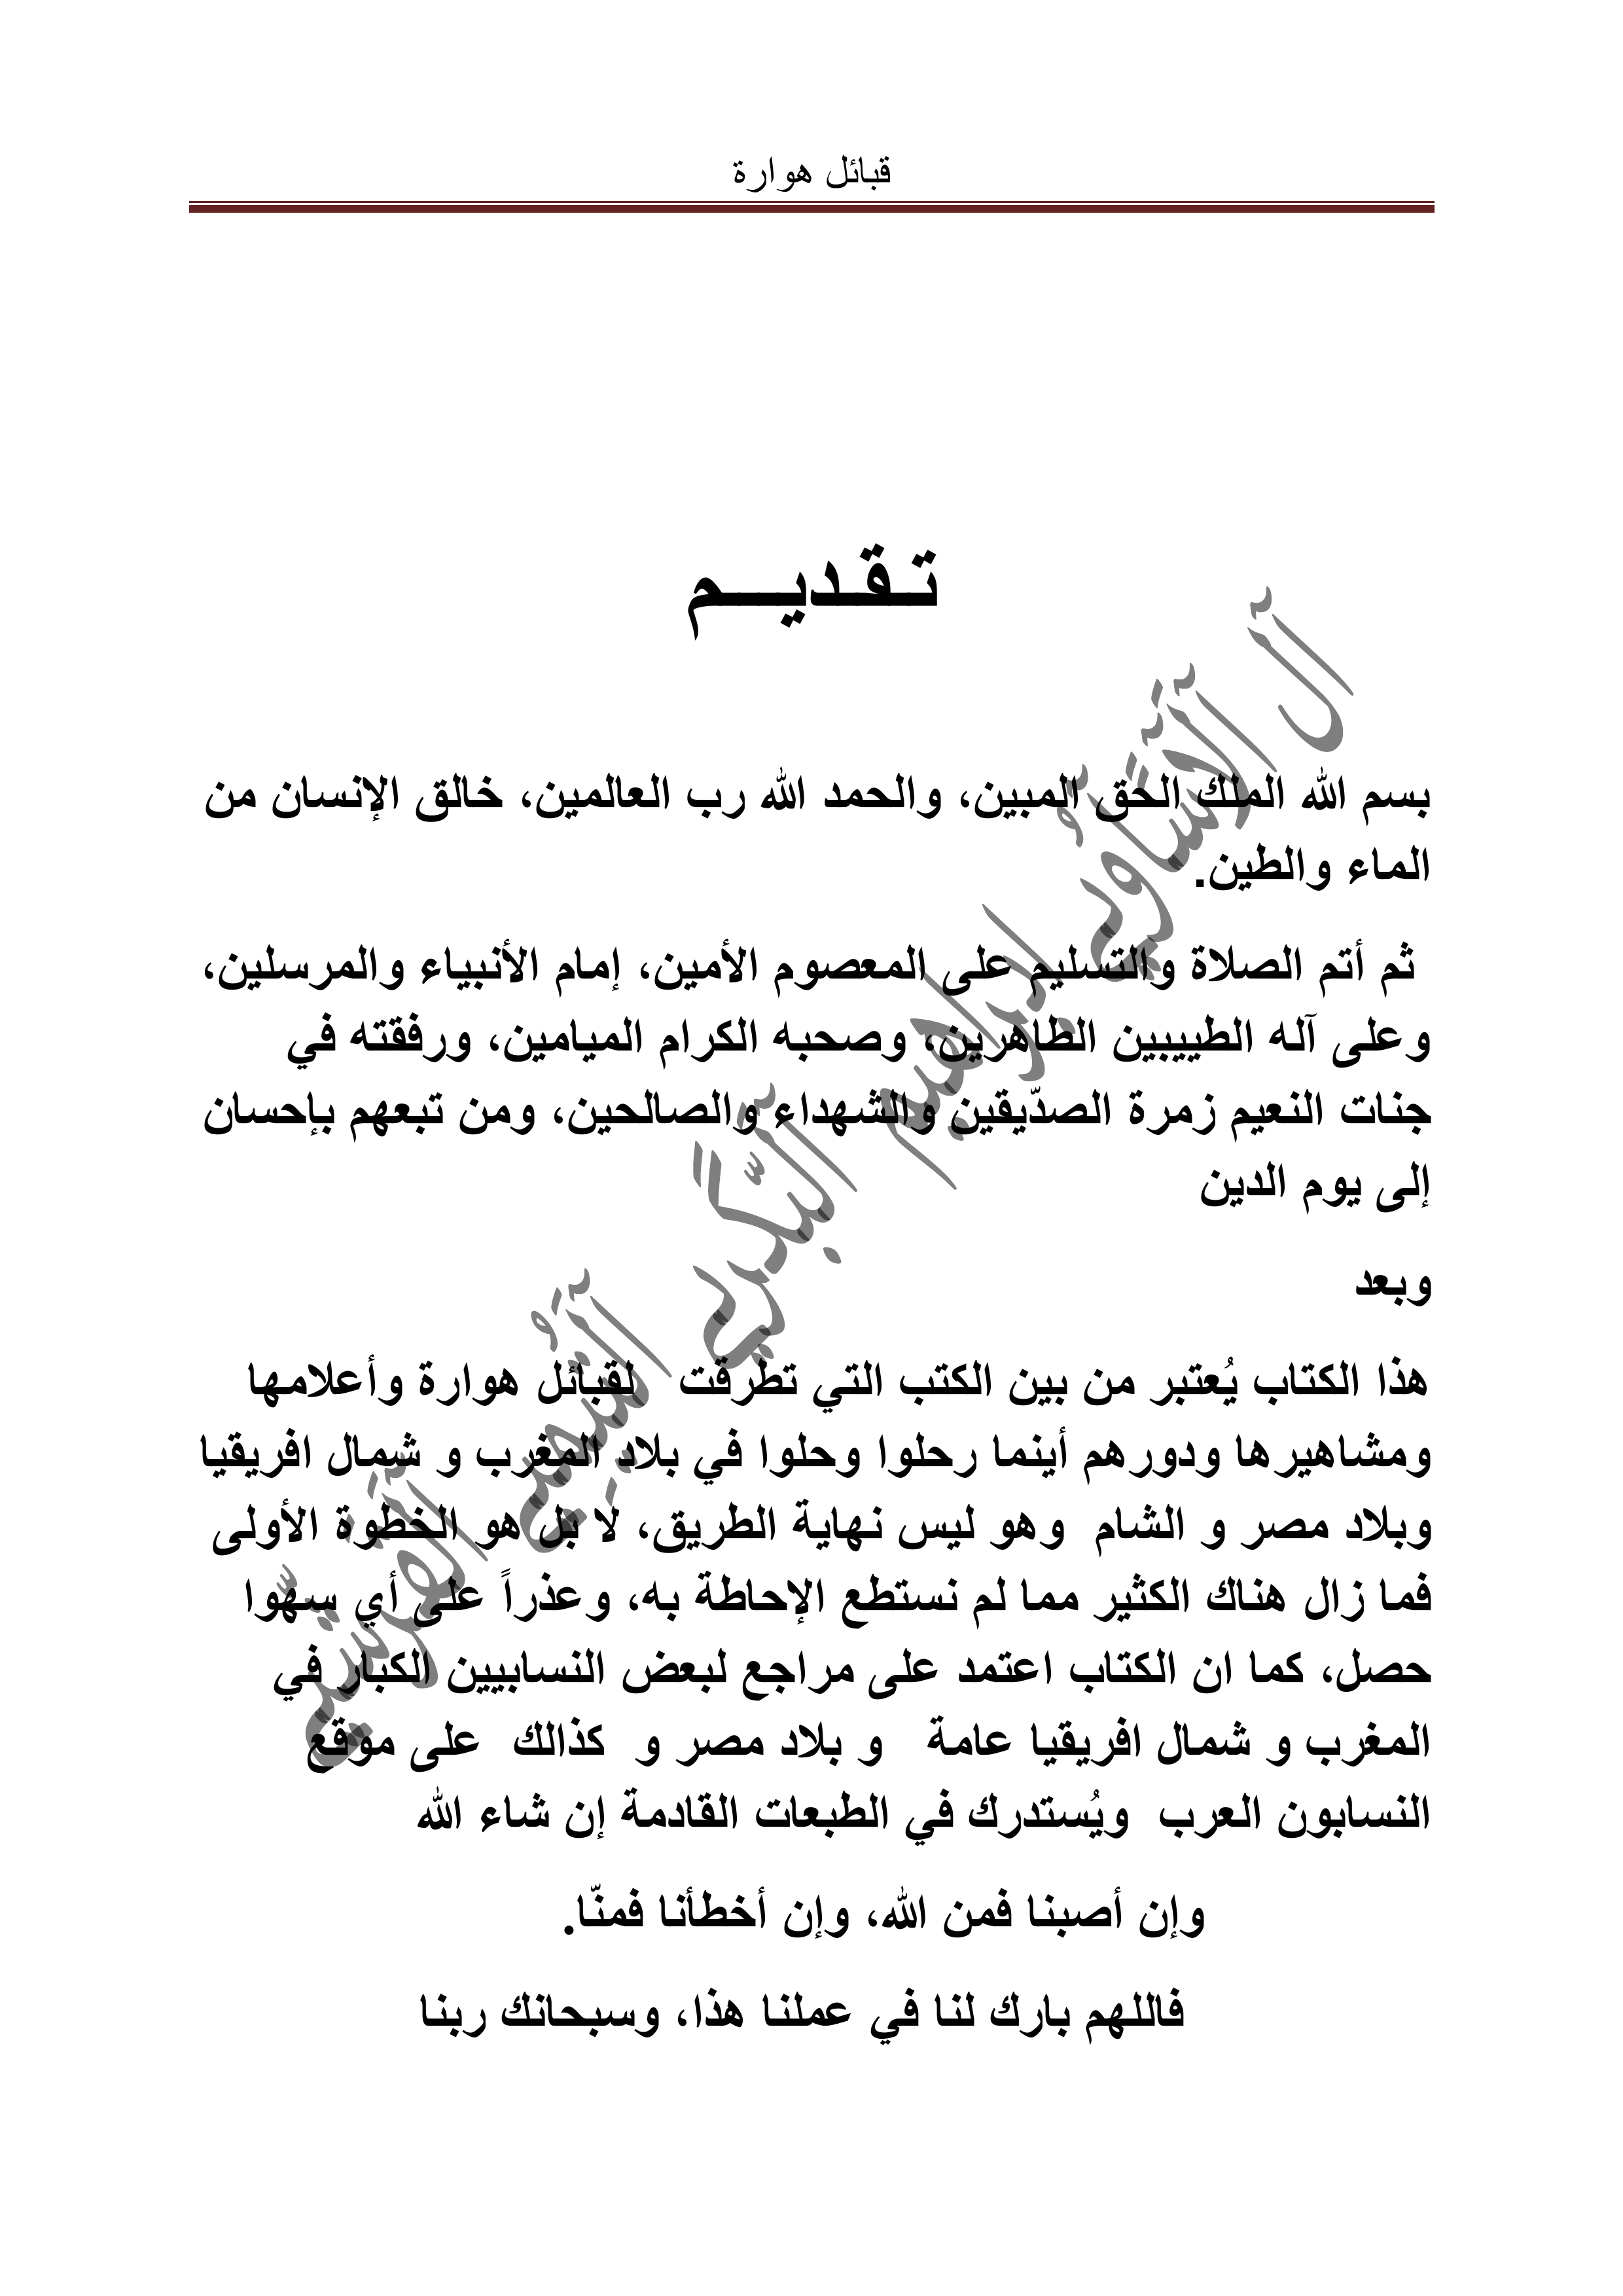 قبائل هوارة
تـقـديـــم
بسم الله الملك الحق المبين، والحمد الله رب العالمين، خالق الإنسان من
الماء والطين.
ثم أتم الصلاة والتسليم على المعصوم الأمين، إمام الأنبياء والمرسلين،
وعلى آله الطييبين الطاهرين، وصحبه الكرام الميامين، ورفقته في
جنات النعيم زمرة الصدّيقين والشهداء والصالحين، ومن تبعهم بإحسان
إلى يوم الدين
وبعد
هذا الكتاب يُعتبر من بين الكتب التي تطرقت لقبائل هوارة وأعلامها
ومشاهيرها ودورهم أينما رحلوا وحلوا في بلاد المغرب و شمال افريقيا
وبلاد مصر و الشام وهو ليس نهاية الطريق، لا بل هو الخطوة الأولى
فما زال هناك الكثير مما لم نستطع الإحاطة به، وعذراً على أي سهوا
حصل، كما ان الكتاب اعتمد على مراجع لبعض النسابيين الكبار في
المغرب و شمال افريقيا عامة و بلاد مصر و كذالك على موقع
النسابون العرب ويُستدرك في الطبعات القادمة إن شاء الله
وإن أصبنا فمن الله، وإن أخطأنا فمنّا.
فاللهم بارك لنا في عملنا هذا، وسبحانك ربنا